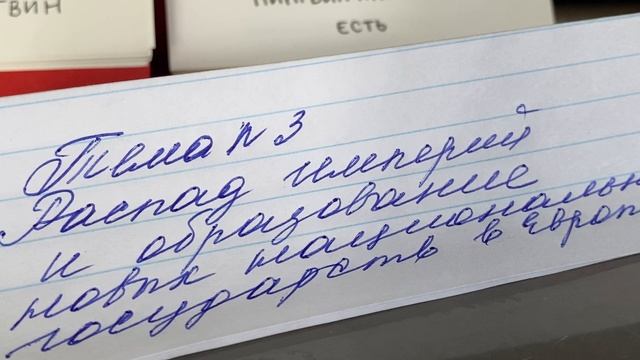 ГВИН
ЕСТЬ
Тема n 3
Распад империй
и образование
новых национальн
государств в Европ